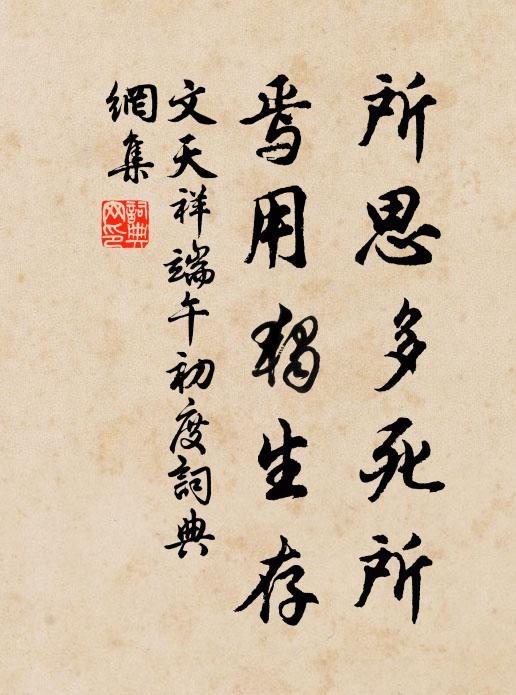 所思多死所
焉用獨生存
文天祥端午初度詞典
網集
詞典
网印